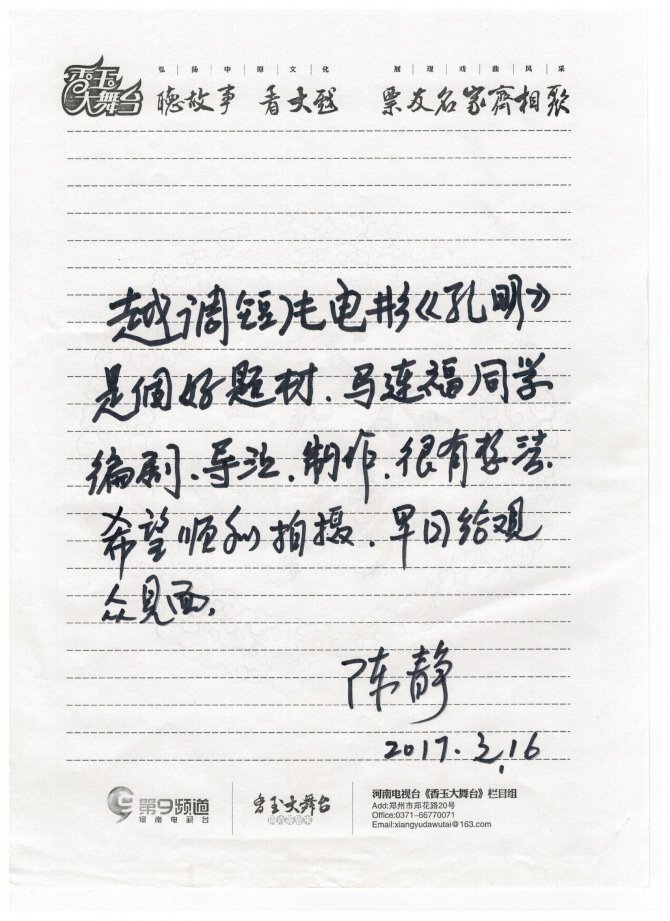 弘扬中原文化 展现戏曲风采
香玉大舞台
聽故事 看大戲 票友名家齊相聚
越调短片电影《孔明》
是個好题材、马连福同学
编剧、导注、制作、很有想法、
希望顺利拍摄、早日给观
众见面,
陈静
2017.3.16
第9频道
河南电视台
香玉大舞台
河南电视台《香玉大舞台》栏目组
Add:郑州市郑花路20号
Office:0371-66770071
Email:xiangyudawutai@163.com